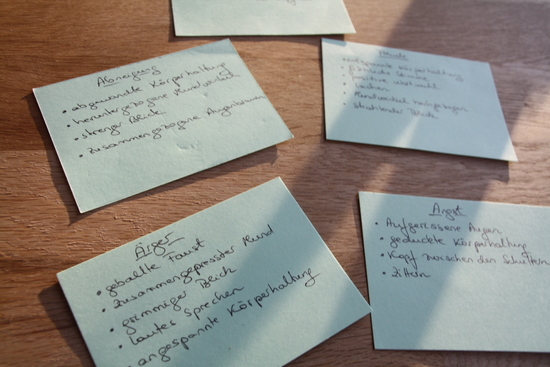 Abneigung
• abgewandte Körperhaltung
• heruntergezogene Mundwinkel
• strenger Blick
• zusammengezogene Augenbrauen
Freude
• entspannte Körperhaltung
• fröhliche Stimme
• positive
• lachen
• Mundwinkel hochgezogen
• strahlender Blick
Ärger
• geballte Faust
• zusammengepresster Mund
• grimmiger Blick
• lautes Sprechen
• angespannte Körperhaltung
Angst
• Aufgerissene Augen
• geduckte Körperhaltung
• Kopf zwischen den Schultern
• zittern